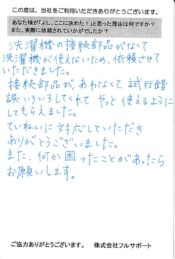 この度は、当社をご利用いただきありがとうございます。
あなた様が「よし、ここに決めた!」と思った理由は何ですか?
また、実際に依頼されていかがでしたか?
洗濯機の接続部品がなくて
洗濯機が使えないため、依頼させて
いただきました。
接続部品が、あわなくて試行錯
誤いろいろしてくれて やっと使えるように
してもらえました。
ていねいに対応していただき
ありがとうございました。
また、何か困ったことがあったら
お願いします。
ご協力ありがとうございます。 株式会社フルサポート